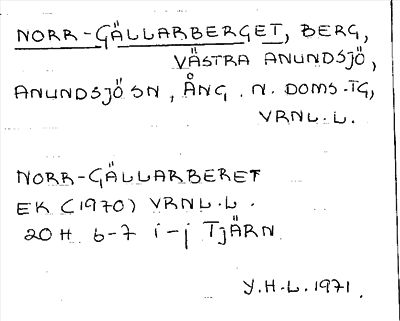 NORR-GÄLLARBERGET, BERG,
VÄSTRA ANUNDSJÖ,
ANUNDSJÖ SN, ÅNG. N. DOMS.TG,
VRNL.L.
NORR-GÄLLARBERET
EK (1970) VRNL.L.
20 H 6-7 i-j TJÄRN
Y.H-L.1971.